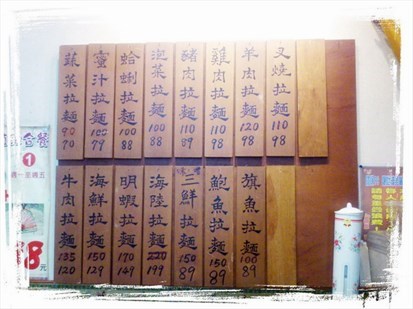 蔬菜拉麵 90 70
蜜汁拉麵 100 79
蛤蜊拉麵 100 88
泡菜拉麵 100 88
豬肉拉麵 110 89
雞肉拉麵 110 98
羊肉拉麵 120 98
叉燒拉麵 110 98
牛肉拉麵 135 120
海鮮拉麵 150 129
明蝦拉麵 170 149
海陸拉麵 220 199
三鮮拉麵 150 89
鮑魚拉麵 150 89
旗魚拉麵 100 89
合餐
1
週一至週五
8元